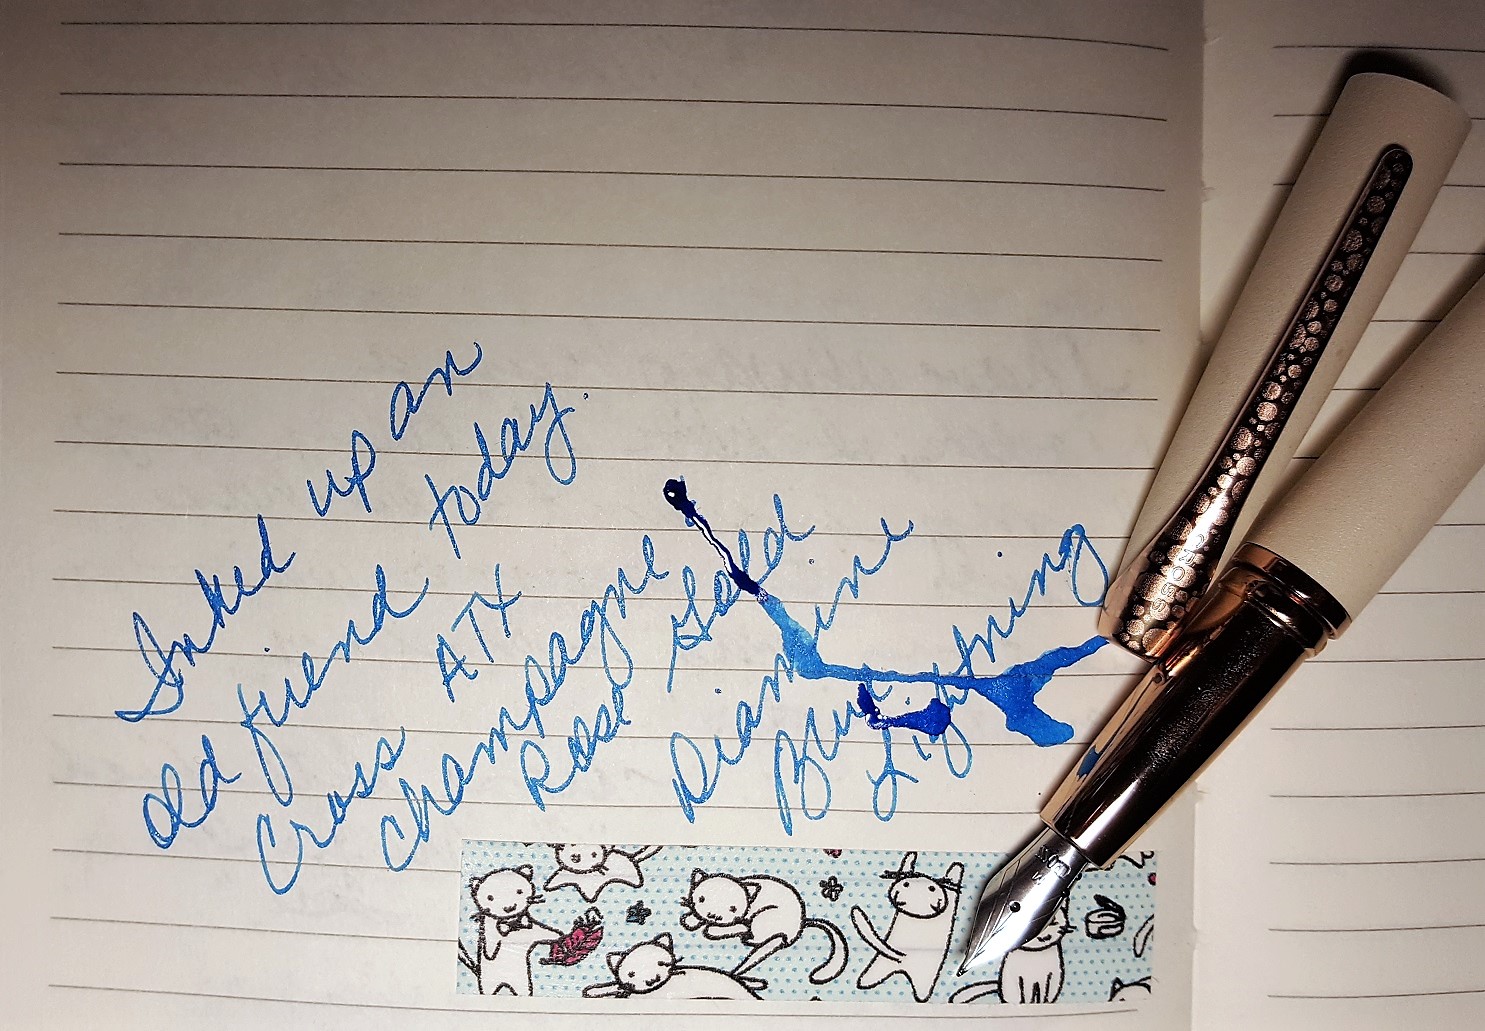 Inked up an
old friend today.
Cross ATX
Champagne
Rose Gold
Diamine
Blue
Lightning
CROSS
CROSS
M